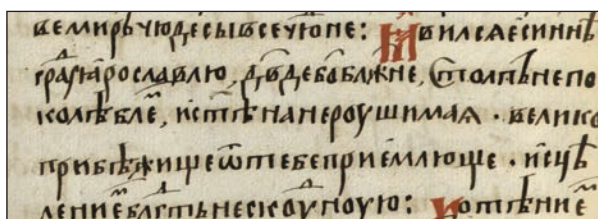 вемирьчюдесывсечюне: Ꙗвилсѧесиннѣ
градꙋꙗрославлю, дв҃дебоблж҃не, столпънепо
колѣблем, истѣнанероушимаѧ · велико
прибѣжищеѿтебеприемлюще · исцѣ
лениебл҃гтьнескоудноую: Коптѣние